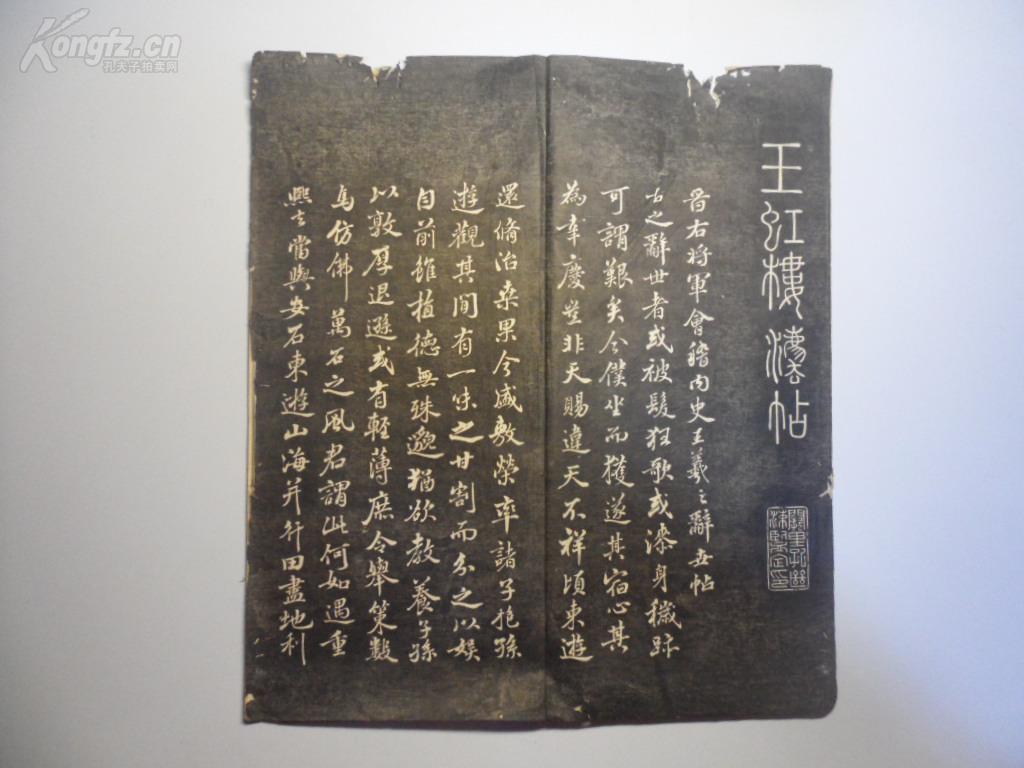 Kongfz.cn
孔夫子拍卖网
玉虹樓灋帖
闕里孔繼涑鑒定印
晉右將軍會稽內史王羲之辭世帖
古之辭世者或被髮狂歌或漆身穢跡
可謂艱矣今僕坐而獲遂其宿心其
為幸慶豈非天賜違天不祥頃東遊
還脩治桑果今盛敷榮率諸子抱孫
遊觀其間有一味之甘割而分之以娛
目前雖植德無殊邈猶欲教養子孫
以敦厚退遜或有輕薄庶令舉策數
馬仿佛萬石之風君謂此何如遇重
熙去當與安石東遊山海并行田盡地利